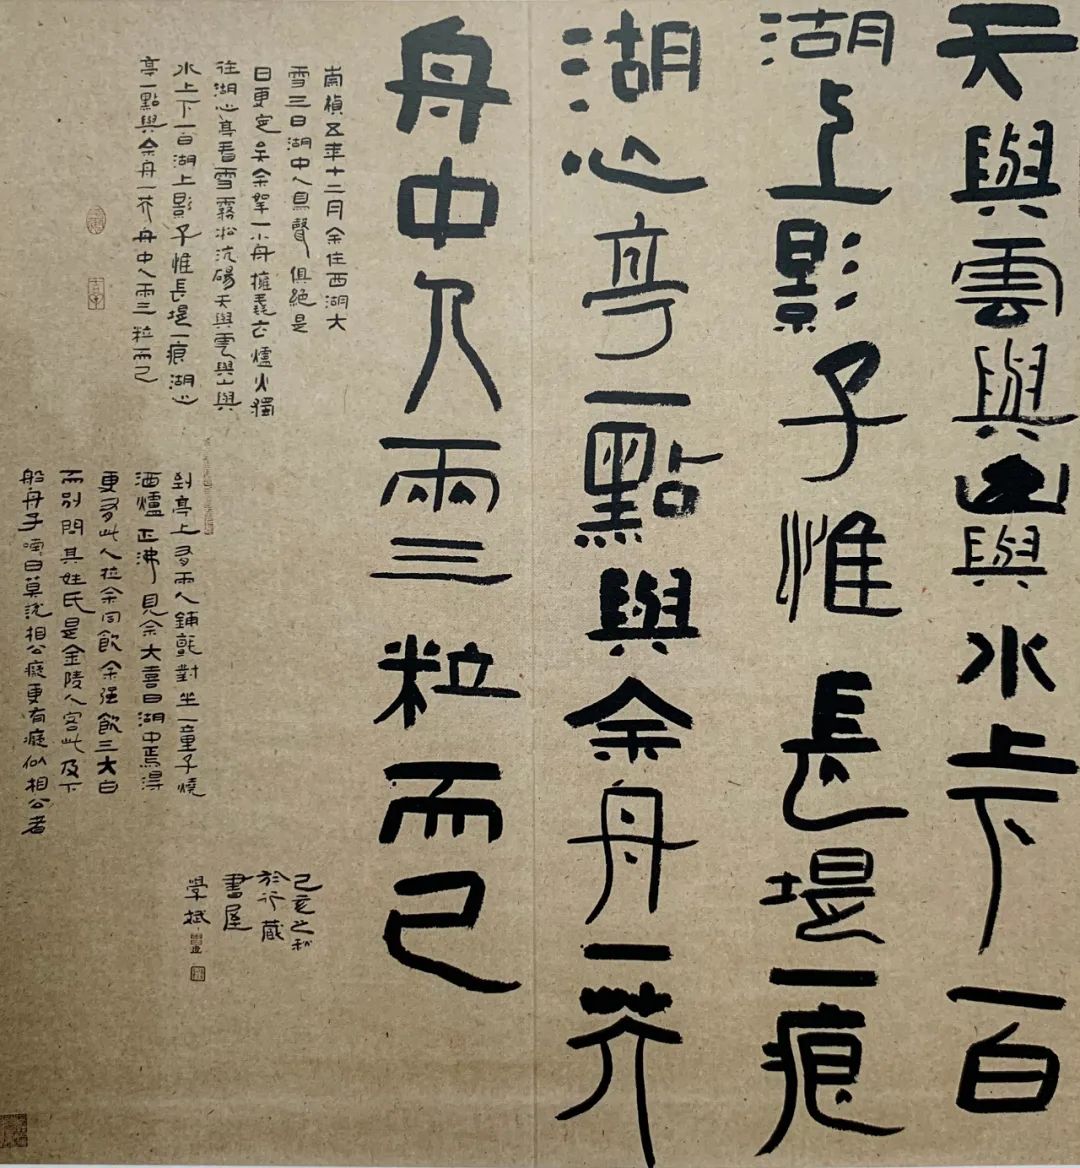 天與雲與山與水上下一白
湖上影子惟長堤一痕
湖心亭一點與余舟一芥
舟中人兩三粒而已
崇禎五年十二月余住西湖大
雪三日湖中人鳥聲俱絕是
日更定矣余拏一小舟擁毳衣爐火獨
往湖心亭看雪霧凇沆碭天與雲與山與
水上下一白湖上影子惟長堤一痕湖心
亭一點與余舟一芥舟中人兩三粒而已
到亭上有兩人鋪氈對坐一童子燒
酒爐正沸見余大喜曰湖中焉得
更有此人拉余同飲余強飲三大白
而別問其姓氏是金陵人客此及下
船舟子喃曰莫說相公癡更有癡似相公者
己亥之秋
於行藏
書屋
學斌